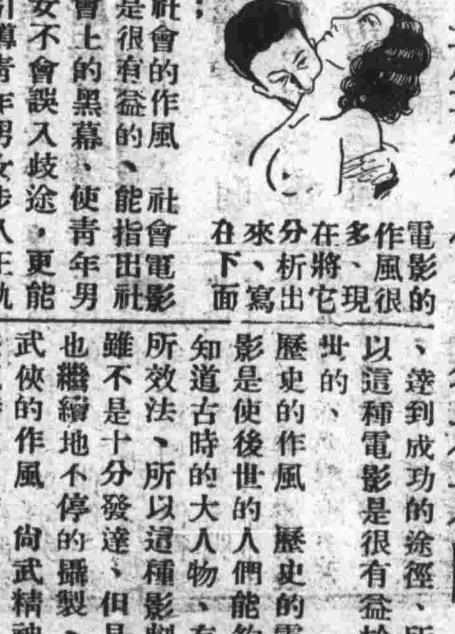 電影的
作風很
多、現
在將它
分析出
來、寫
在下面
；
社會的作風　社會電影
是很有益的、能指出社
會上的黑幕、使靑年男
女不會誤入歧途，更能
引導靑年男女步入正軌
、達到成功的途徑、所
以這種電影是很有益於
世的、
歷史的作風　歷史的電
影是使後世的人們能夠
知道古時的大人物、有
所效法、所以這種影劇
雖不是十分發達、但是
也繼續地不停的攝製、
武俠的作風　尙武精神